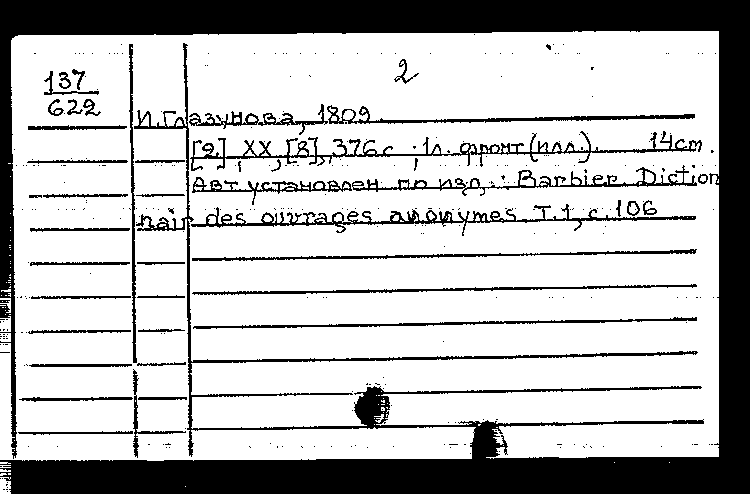 2
137
622
И. Глазунова, 1809.
[2], XX, [8], 376 с ; 1л. фронт (илл.). 14 cm.
Авт установлен по изд.: Barbier. Diction
nair des ouvrages anonymes. T. 1, c. 106